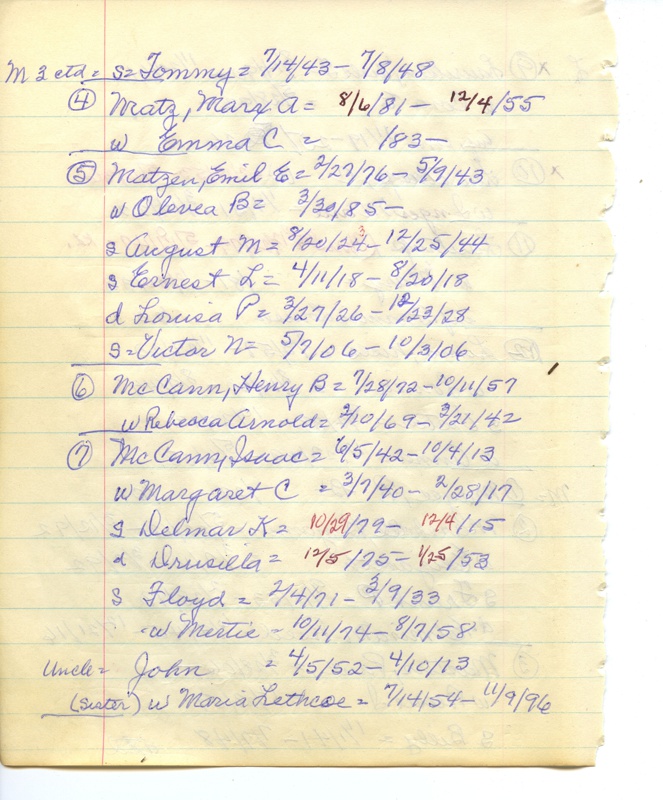 M 3 ctd = s = Tommy = 7/14/43 - 7/8/48
④ Matz, Marx A = 8/6/81 - 12/4/55
w Emma C = /83 -
⑤ Matzen, Emil E = 2/27/76 - 5/9/43
w Olevea B = 3/30/85 -
s August M = 8/20/24 3 - 12/25/44
s Ernest L = 4/11/18 - 8/20/18
d Louisa P = 3/27/26 - 12/23/28
s = Victor N = 5/7/06 - 10/3/06
⑥ McCann, Henry B = 7/28/72 - 10/11/57
w Rebecca Arnold = 2/10/69 - 3/21/42
⑦ McCann, Isaac = 6/5/42 - 10/4/13
w Margaret C = 3/7/40 - 2/28/17
s Delmar K = 10/29/79 - 12/4/15
d Drusilla = 12/5/75 - 1/25/53
s Floyd = 2/4/71 - 3/9/33
- w Mertie = 10/11/74 - 8/7/58
Uncle = John = 4/5/52 - 4/10/13
(Sister) w Maria Lethcoe = 7/14/54 - 11/9/96